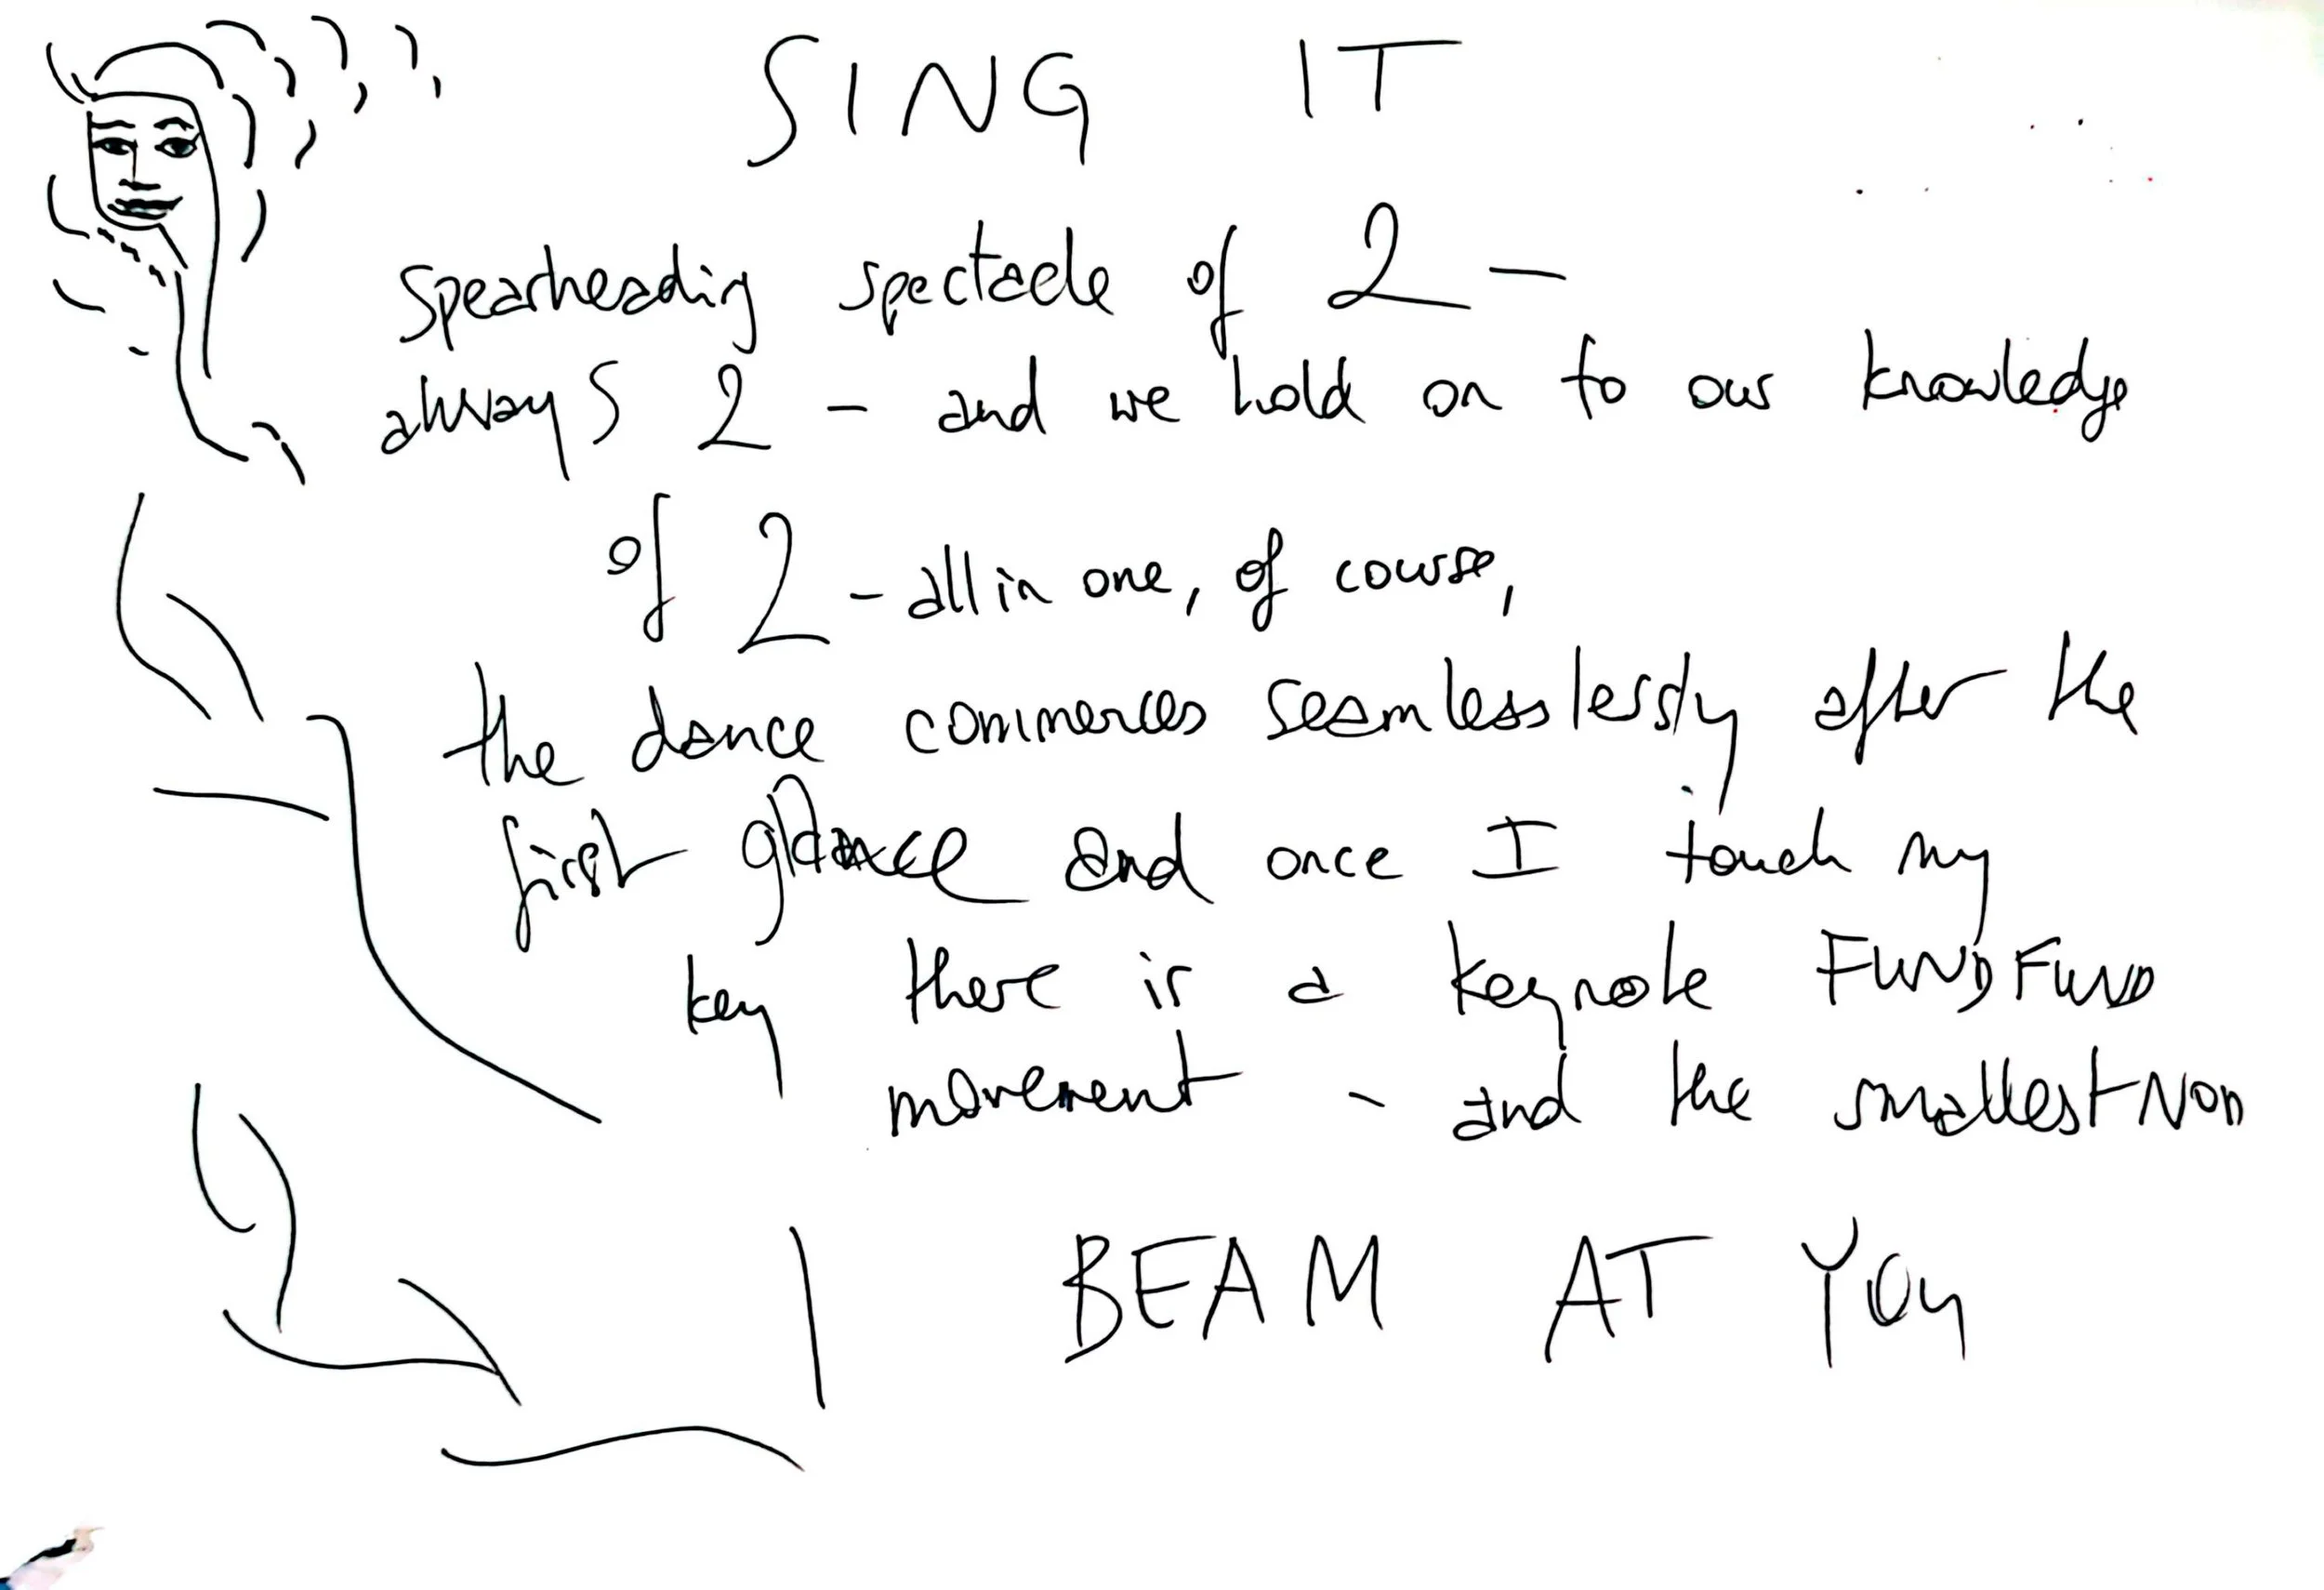 SING IT
Spearheading spectacle of 2 –
always 2 – and we hold on to our knowledge
of 2 – all in one, of course,
the dance commences seamlesslessly after the
first glance and once I touch my
key there is a keynote FUND FUND
movement – and the smallest NOD
I BEAM AT YOU